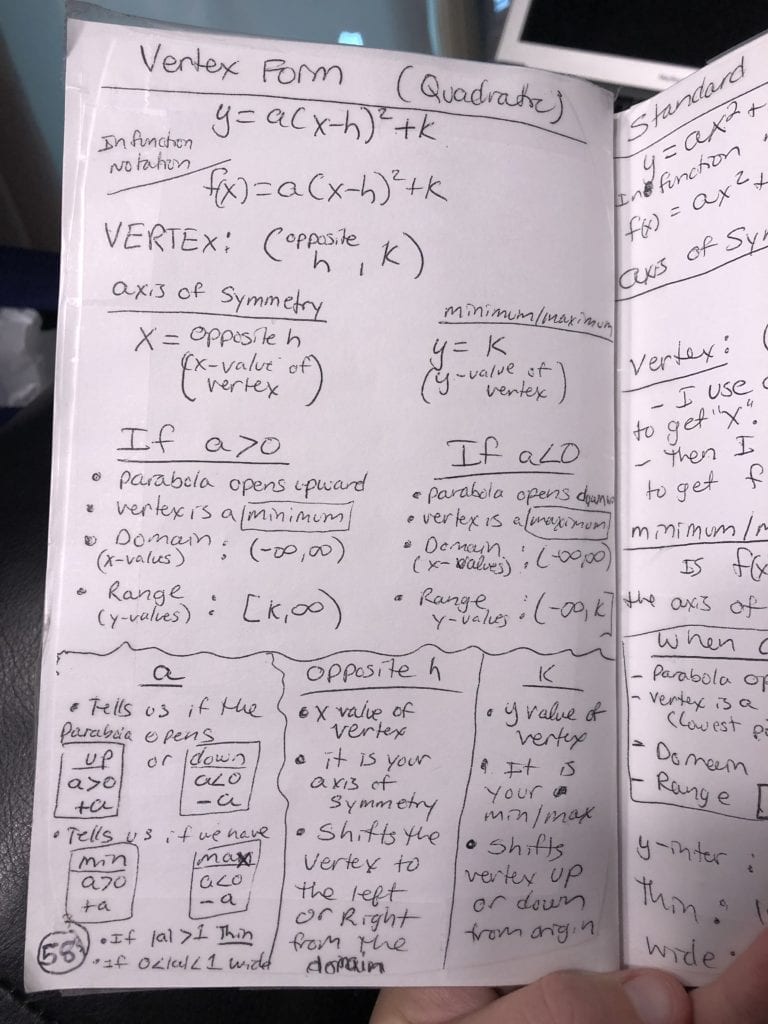 Vertex Form (Quadratic)
y = a(x-h)² + k
In function
Notation
f(x) = a(x-h)² + k
VERTEX: (opposite h, k)
axis of Symmetry
X = opposite h
(x-value of
vertex)
minimum/maximum
y = k
(y-value of
vertex)
If a>0
• parabola opens upward
• vertex is a minimum
• Domain : (-∞,∞)
(x-values)
• Range : [k,∞)
(y-values)
If a<0
• parabola opens
• vertex is a maximum
• Domain : (-∞,∞)
(x-values)
• Range : (-∞,k]
y-values
a
• Tells us if the
Parabola opens
up or down
a>0 a<0
+a -a
• Tells us if we have
min max
a>0 a<0
+a -a
• If |a|>1 Thin
• If 0<|a|<1 wide
58
opposite h
• x value of
vertex
• it is your
axis of
symmetry
• Shifts the
vertex to
the left
or Right
from the
domain
K
• y value of
vertex
• It is
your
min/max
• Shifts
vertex up
or down
from origin
Standard
y = ax² +
In function
f(x) = ax² +
axis of Sym
Vertex: (
- I use
to get "x".
- Then I
to get f
minimum/m
Is f(x
the axis of
When
- Parabola op
- vertex is a
(lowest
- Domain
- Range [
y-inter :
thin :
wide :